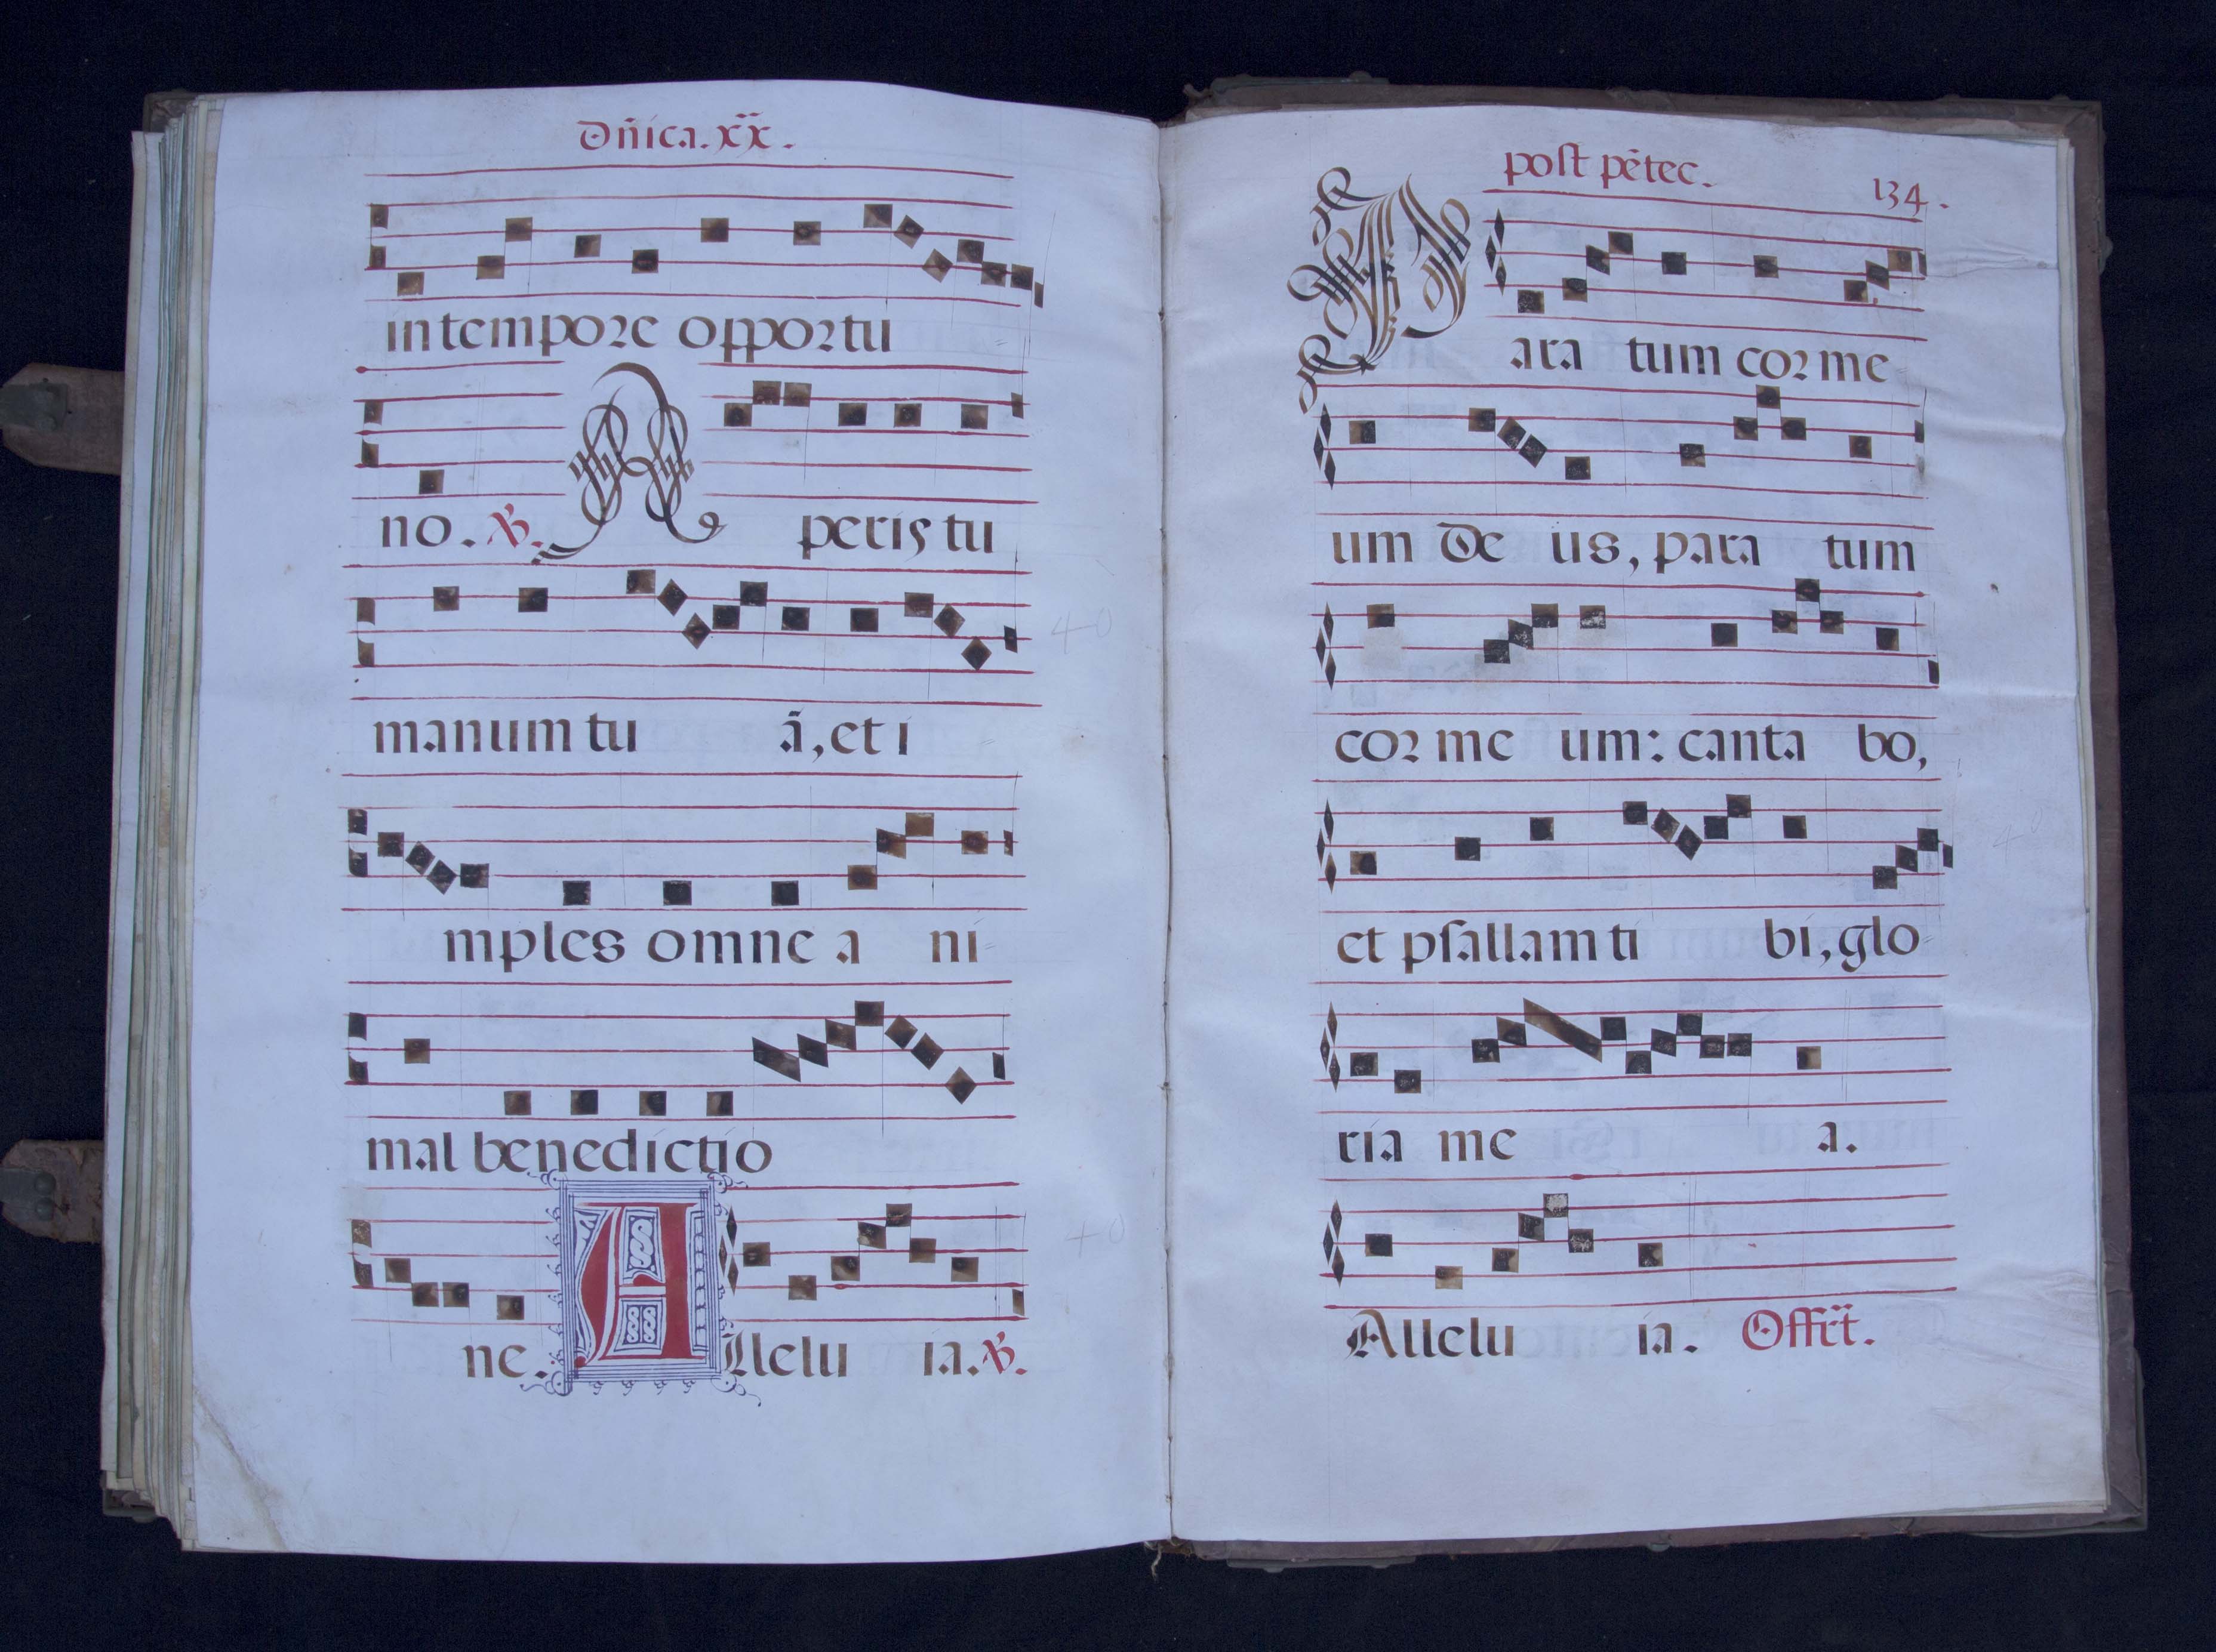 Dn̄ica. xx.
in tempore opportu
no. ℣. Aperis tu
manum tu ā, et i
mples omne a ni
mal benedictio
ne. Allelu ia. ℣.
post pētec. 134.
Para tum cor me
um De us, para tum
cor me um: canta bo,
et psallam ti bi, glo
ria me a.
Allelu ia. Offēt.
40
40